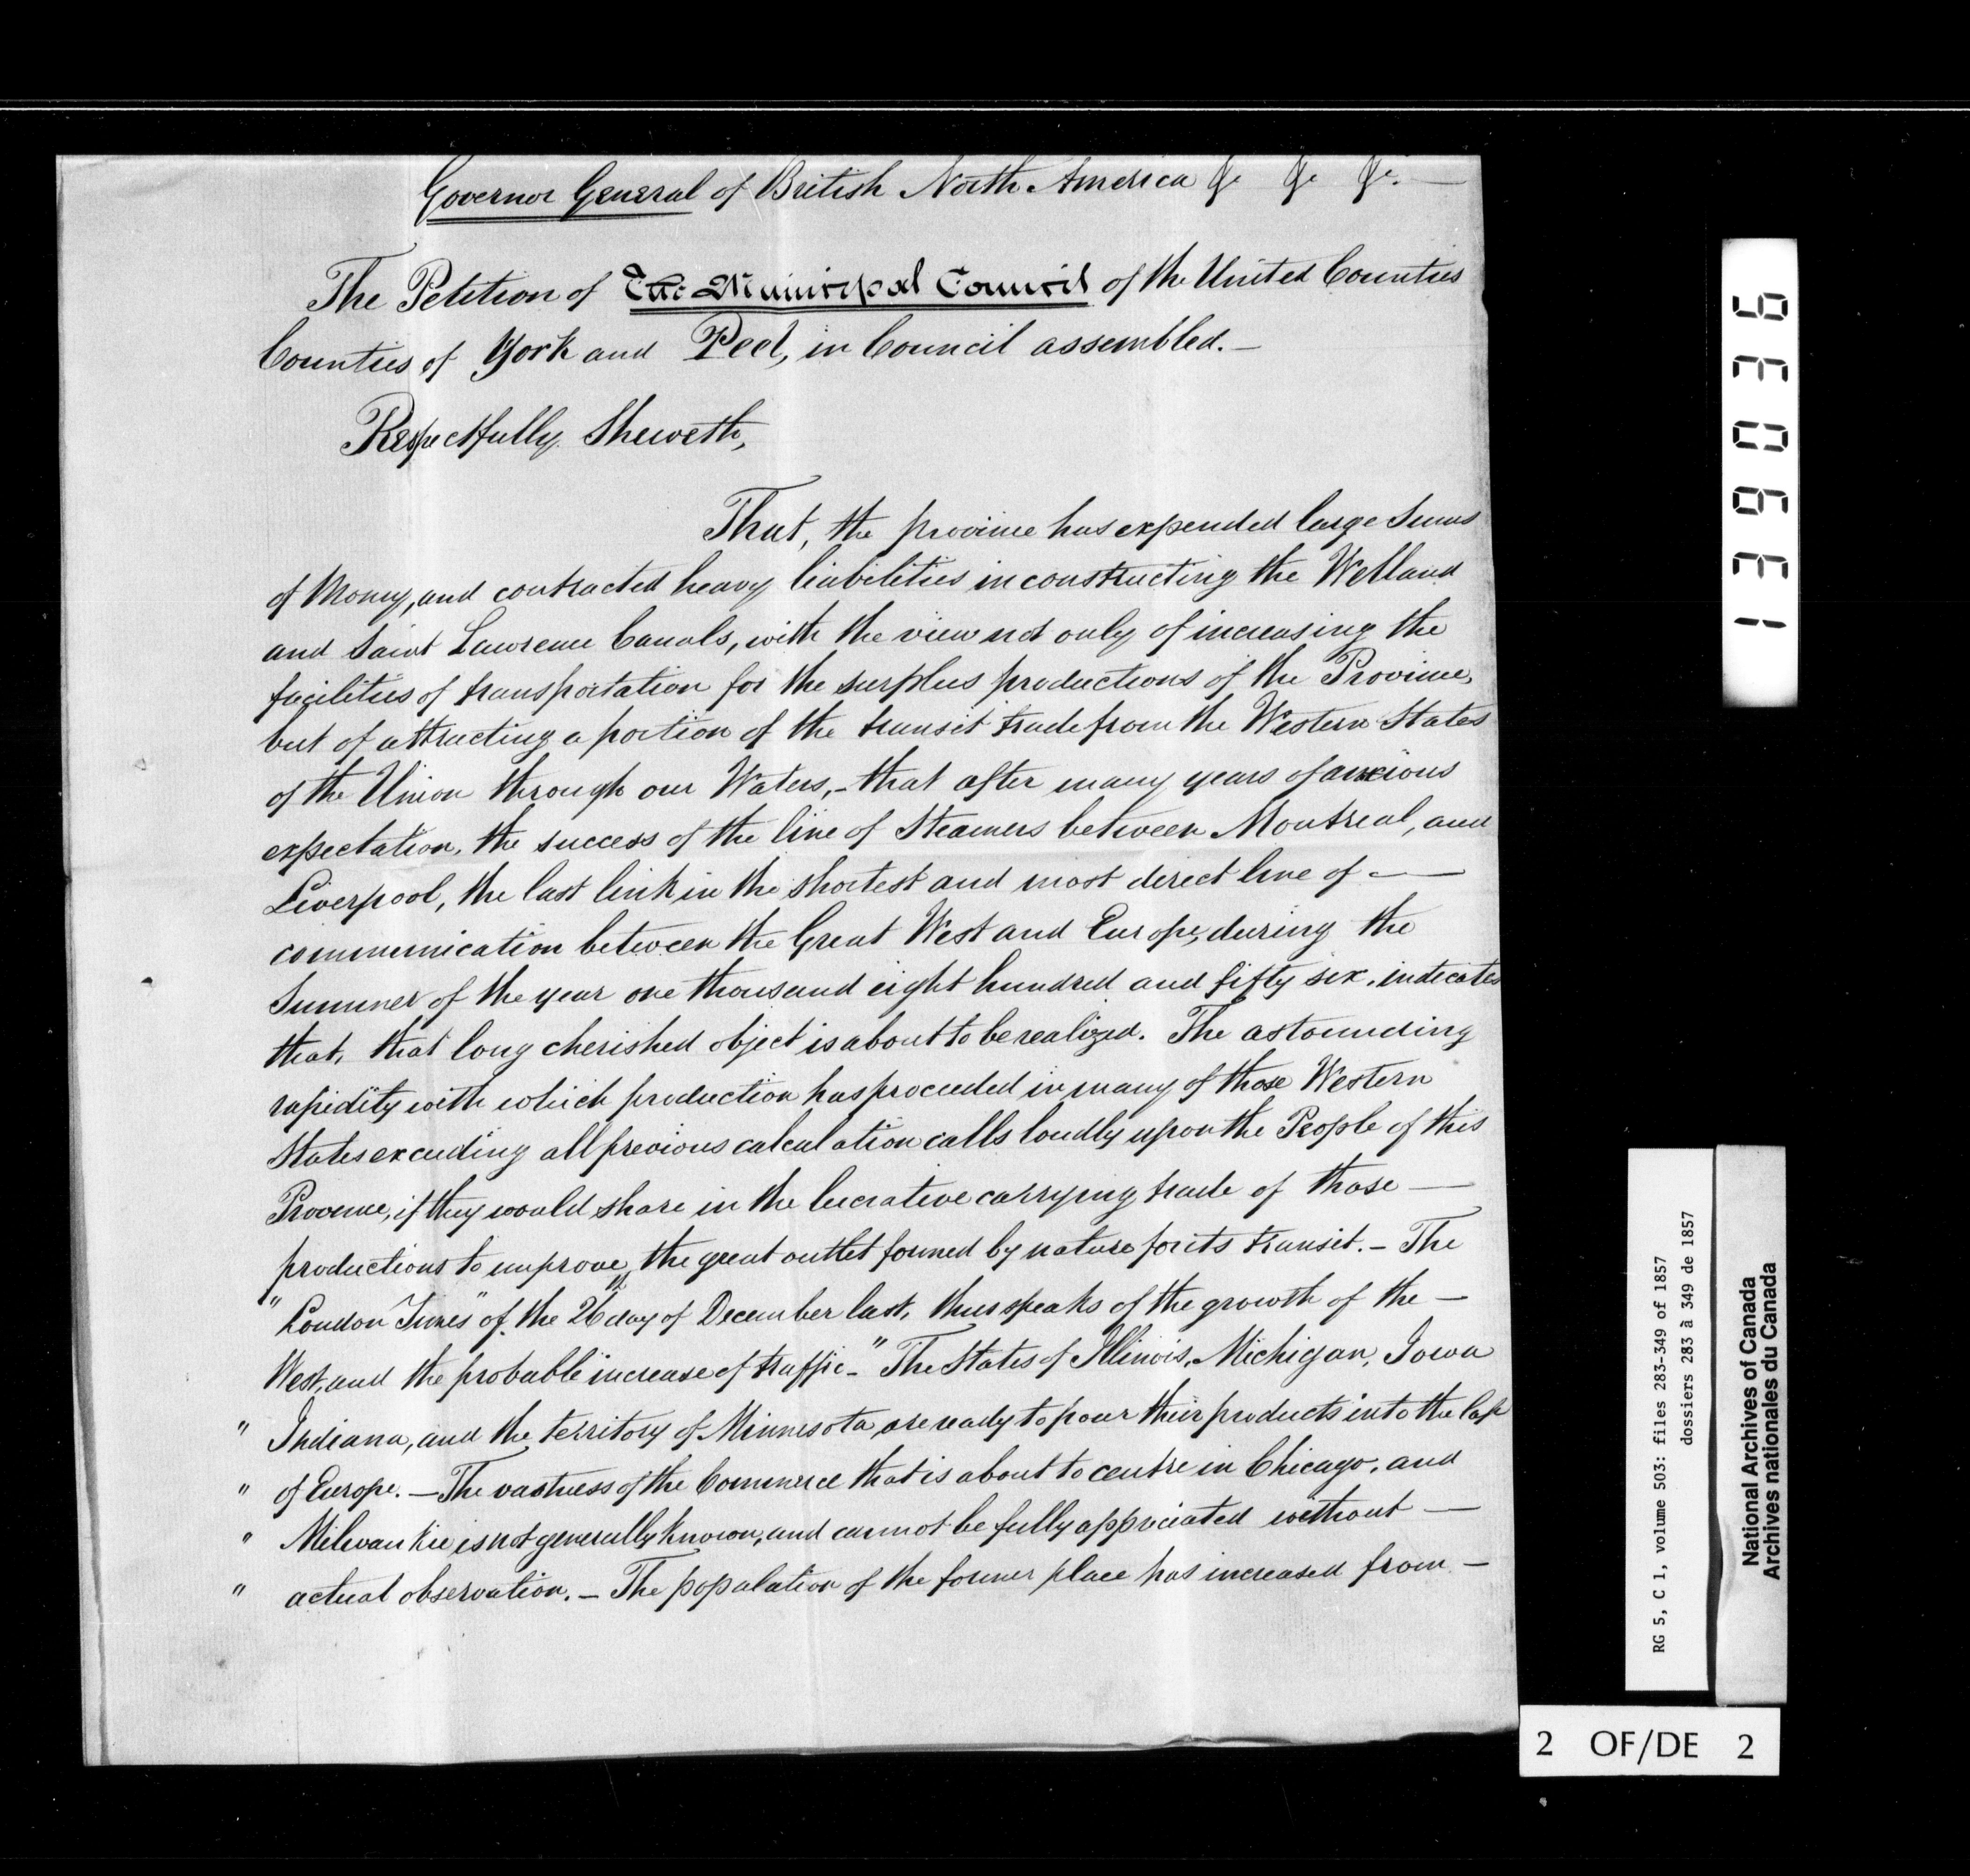 Governor General of British North America &c &c &c. —
The Petition of The Municipal Council of the United Counties
Counties of York and Peel, in Council assembled. —
Respectfully Sheweth,
That, the province has expended large Sums
of Money, and contracted heavy liabilities in constructing the Welland
and Saint Lawrence Canals, with the view not only of increasing the
facilities of transportation for the surplus productions of the Province,
but of attracting a portion of the transit trade from the Western States
of the Union through our Waters, - that after many years of anxious
expectation, the success of the line of Steamers between Montreal, and
Liverpool, the last link in the shortest and most direct line of —
communication between the Great West and Europe, during the
Summer of the year one thousand eight hundred and fifty six, indicates
that, that long cherished object is about to be realized. The astounding
rapidity with which production has proceeded in many of those Western
States exceeding all previous calculation calls loudly upon the People of this
Province, if they would share in the lucrative carrying trade of those —
productions to improve, the great outlet formed by nature for its transit. - The
"London Times" of the 26th day of December last, thus speaks of the growth of the —
West, and the probable increase of traffic - "The States of Illinois, Michigan, Iowa
" Indiana, and the territory of Minnesota, are ready to pour their products into the lap
" of Europe. — The vastness of the Commerce that is about to centre in Chicago, and
" Milwaukie is not generally known, and cannot be fully appreciated without —
" actual observation. — The population of the former place has increased from —
139036
RG 5, C 1, volume 503: files 283-349 of 1857
dossiers 283 à 349 de 1857
National Archives of Canada
Archives nationales du Canada
2 OF/DE 2